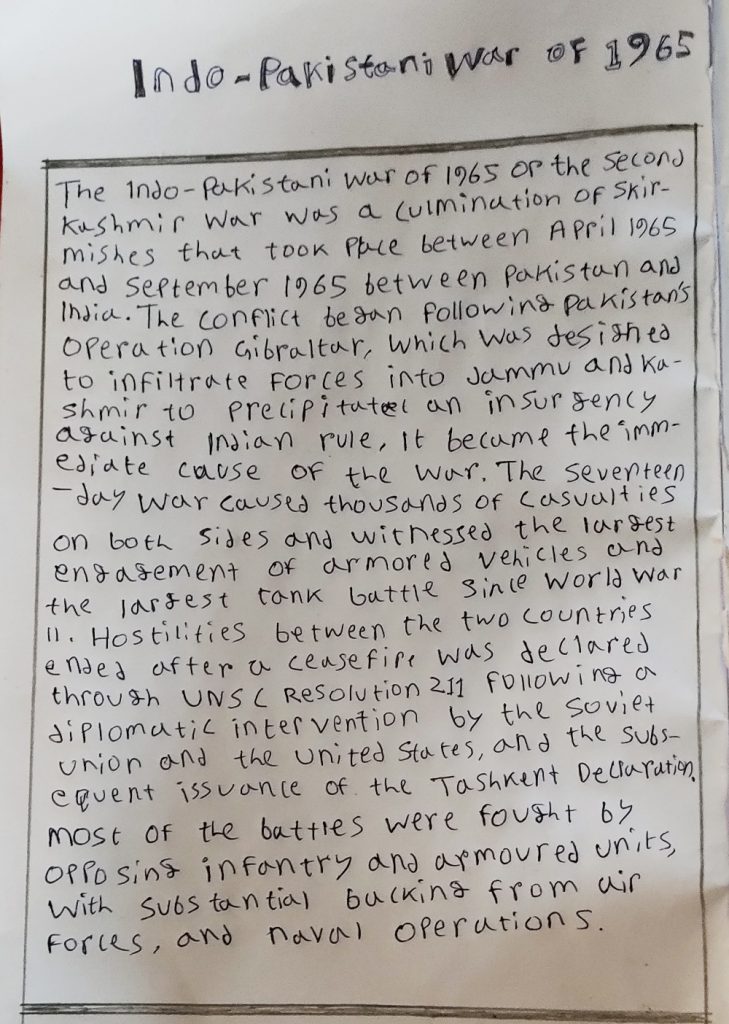 Indo-Pakistani War of 1965
The Indo-Pakistani War of 1965 or the Second
Kashmir War was a culmination of Skir-
mishes that took place between April 1965
and September 1965 between Pakistan and
India. The conflict began following Pakistan's
Operation Gibraltar, which was designed
to infiltrate forces into Jammu and Ka-
shmir to precipitateel an insurgency
against Indian rule, It became the imm-
ediate cause of the war. The seventeen
-day war caused thousands of casualties
on both sides and witnessed the largest
engagement of armored vehicles and
the largest tank battle since World War
II. Hostilities between the two countries
ended after a ceasefire was declared
through UNSC Resolution 211 following a
diplomatic intervention by the Soviet
union and the United States, and the subs-
equent issuance of the Tashkent Declaration.
most of the battles were fought by
opposing infantry and armoured units,
With substantial backing from air
forces, and naval operations.